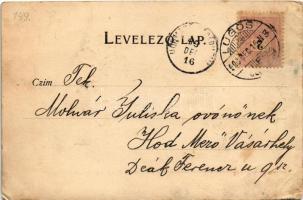 LEVELEZŐ-LAP.
LUGOS
DEC
16
Czim Tek.
Molnár Juliska ovónőnek
Hod Mező Vásárhely
Deák Ferencz u 9 sz.